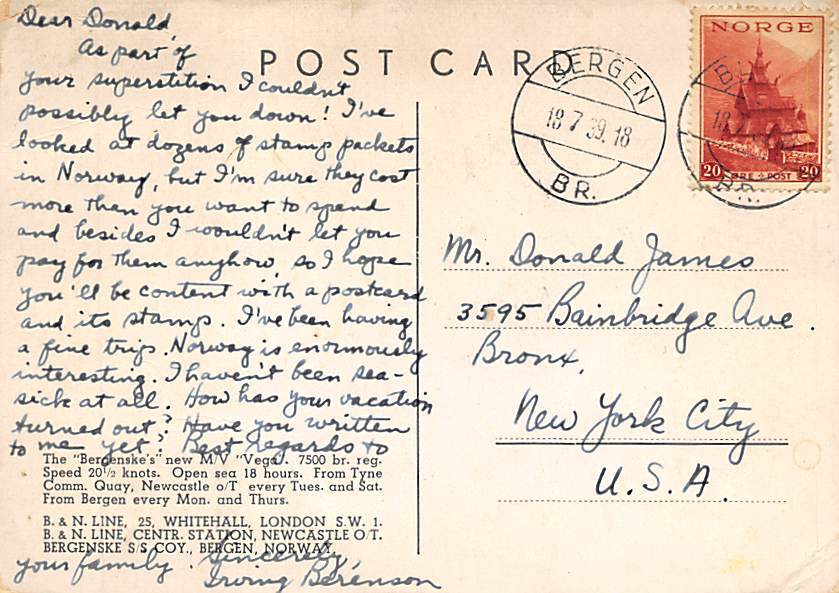 Dear Donald,
As part of
your superstition I couldn't
possibly let you down! I've
looked at dozens of stamp packets
in Norway, but I'm sure they cost
more than you want to spend
and besides I wouldn't let you
pay for them anyhow, so I hope
you'll be content with a postcard
and its stamp. I've been having
a fine trip. Norway is enormously
interesting. I haven't been sea-
sick at all. How has your vacation
turned out? Have you written
to me yet? Best regards to
your family. Sincerely,
Irving Berenson
The "Bergenske's" new M/V "Vega". 7500 br. reg.
Speed 20 1/2 knots. Open sea 18 hours. From Tyne
Comm. Quay, Newcastle o/T every Tues. and Sat.
From Bergen every Mon. and Thurs.
B. & N. LINE, 25, WHITEHALL, LONDON S.W. 1.
B. & N. LINE, CENTR. STATION, NEWCASTLE O/T.
BERGENSKE S/S COY., BERGEN, NORWAY.
POST CARD
BERGEN
18 7 39. 18
BR.
NORGE
20 ØRE POST 20
BR.
Mr. Donald James
3595 Bainbridge Ave.
Bronx,
New York City
U.S.A.